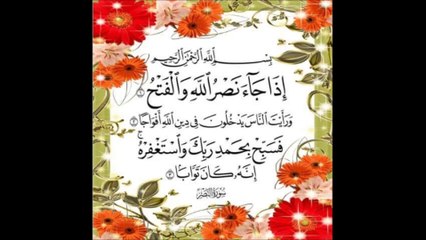 بِسْمِ اللَّهِ الرَّحْمَنِ الرَّحِيمِ
إِذَا جَآءَ نَصْرُ اللَّهِ وَالْفَتْحُ ١
وَرَأَيْتَ النَّاسَ يَدْخُلُونَ فِي دِينِ اللَّهِ أَفْوَاجًا ٢
فَسَبِّحْ بِحَمْدِ رَبِّكَ وَاسْتَغْفِرْهُ ۚ
إِنَّهُ كَانَ تَوَّابًا ٣
سُورَةُ النَّصْرِ